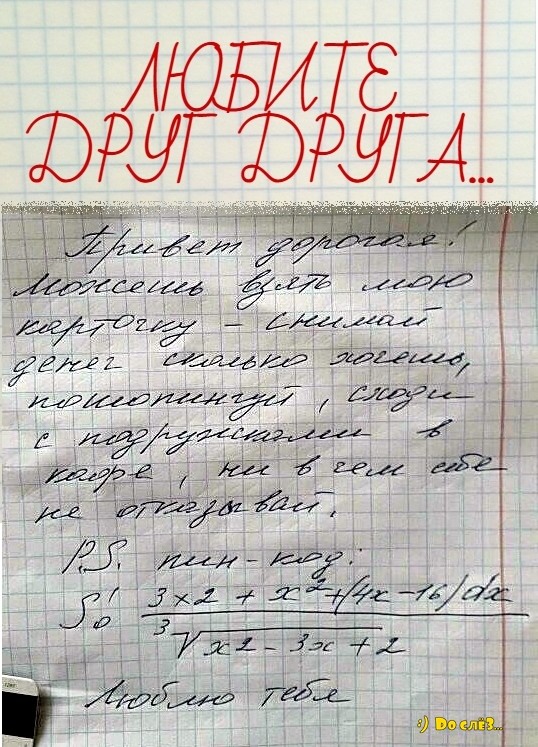 ЛЮБИТЕ
ДРУГ ДРУГА...
Привет дорогая!
Можешь взять мою
карточку – снимай
денег сколько хочешь,
пошопингуй, сходи
с подружками в
кафе, ни в чем себе
не отказывай.
P.S. пин-код:
∫₀¹ 3×2 + x² + (4x – 16) dx
∛x2 – 3x + 2
Люблю тебя
:) Do слёз...